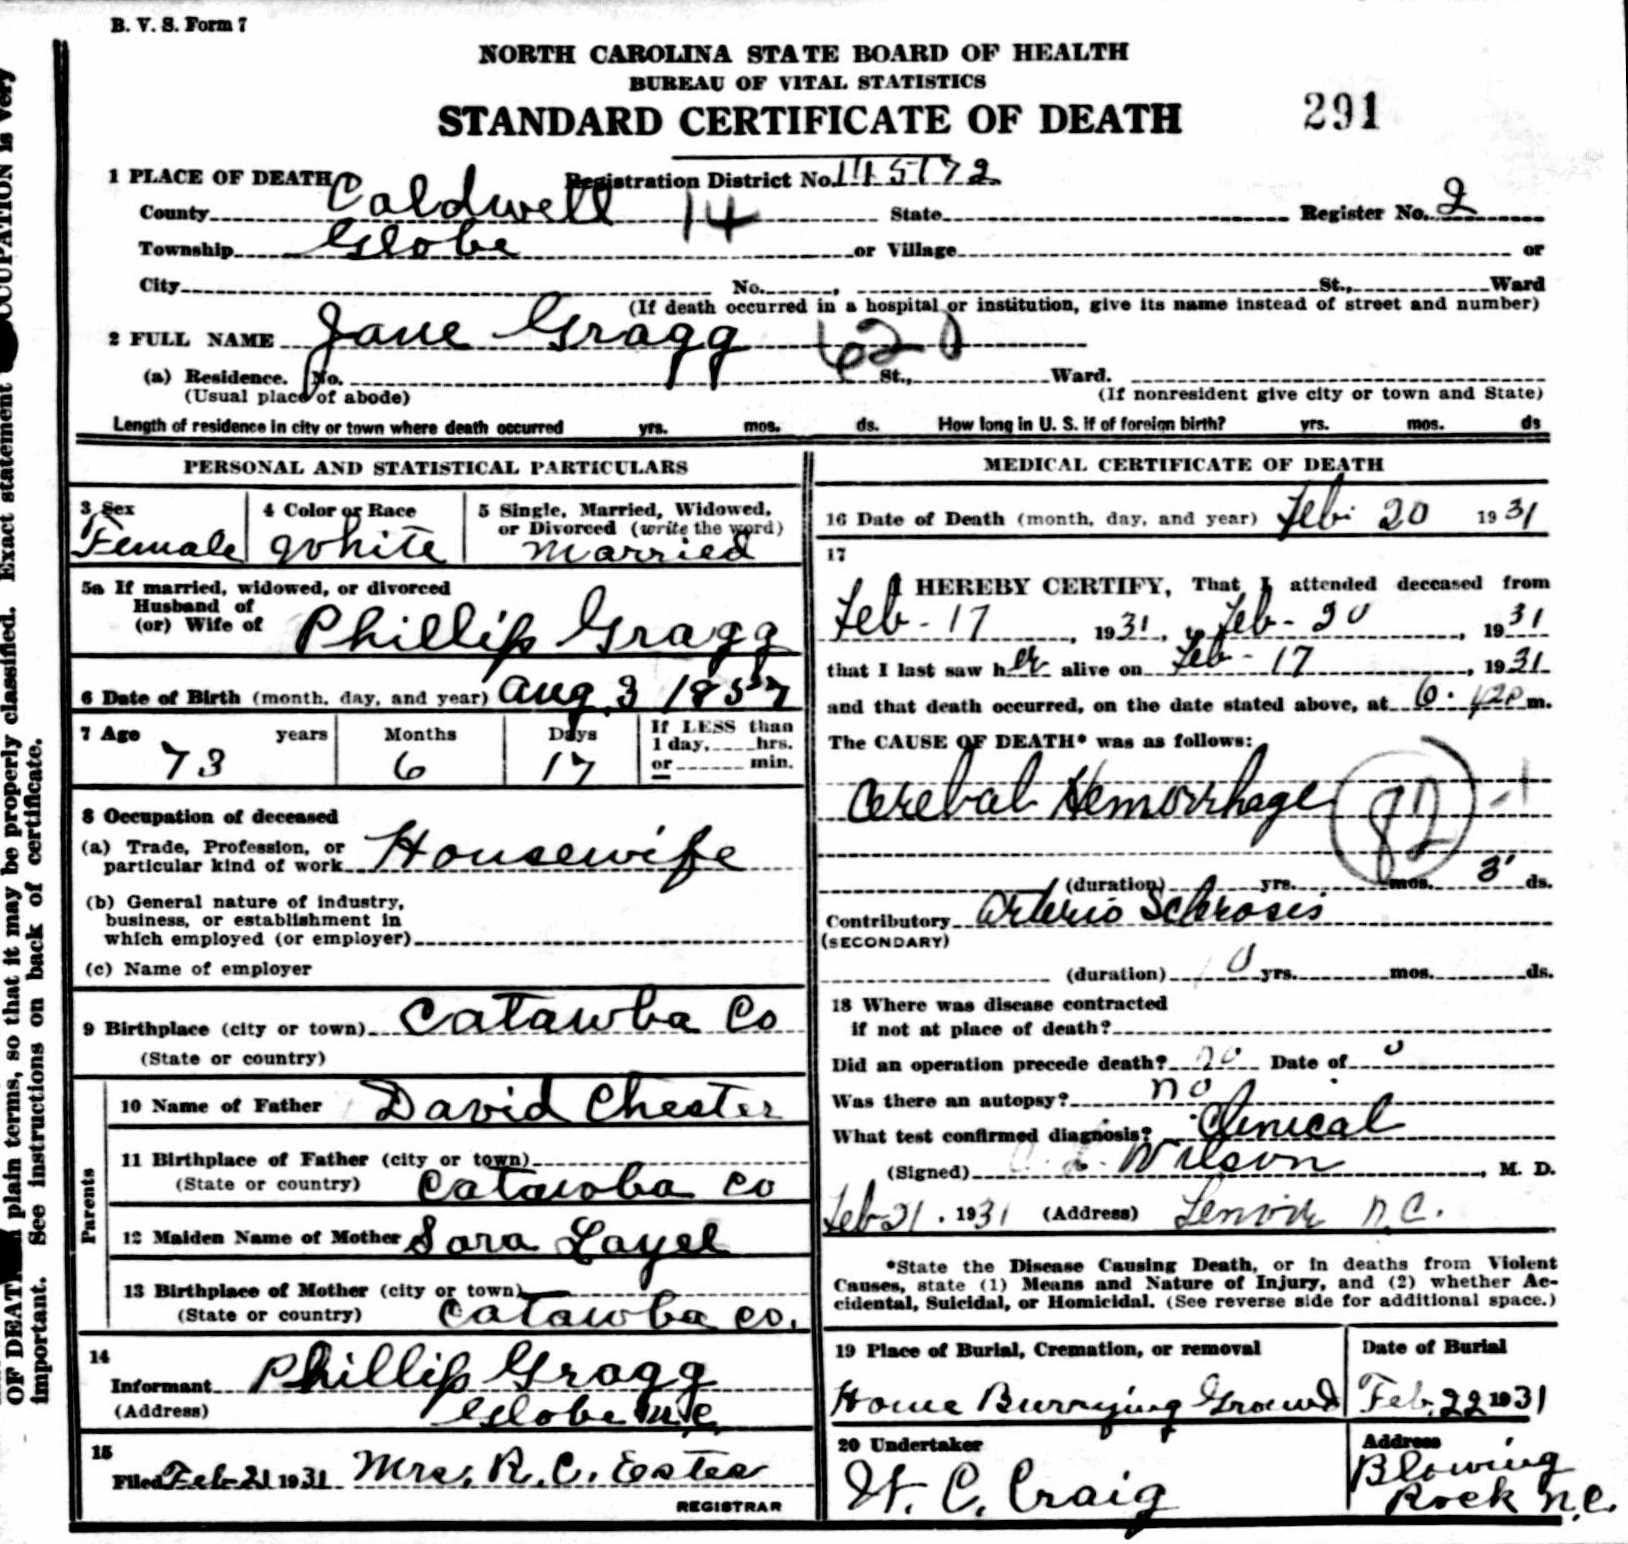 B. V. S. Form 7
NORTH CAROLINA STATE BOARD OF HEALTH
BUREAU OF VITAL STATISTICS
STANDARD CERTIFICATE OF DEATH 291
1 PLACE OF DEATH Registration District No. 145172
County Caldwell 14 State Register No. 2
Township Globe or Village or
City No. , St., Ward
(If death occurred in a hospital or institution, give its name instead of street and number)
2 FULL NAME Jane Gragg 620
(a) Residence. No. St., Ward.
(Usual place of abode) (If nonresident give city or town and State)
Length of residence in city or town where death occurred yrs. mos. ds. How long in U. S. if of foreign birth? yrs. mos. ds
PERSONAL AND STATISTICAL PARTICULARS
3 Sex
Female
4 Color or Race
White
5 Single, Married, Widowed,
or Divorced (write the word)
Married
5a If married, widowed, or divorced
Husband of
(or) Wife of Phillip Gragg
6 Date of Birth (month, day, and year) Aug 3 1857
7 Age years Months Days If LESS than
1 day, hrs.
73 6 17 or min.
8 Occupation of deceased
(a) Trade, Profession, or
particular kind of work Housewife
(b) General nature of industry,
business, or establishment in
which employed (or employer)
(c) Name of employer
9 Birthplace (city or town) Catawba Co
(State or country)
Parents
10 Name of Father David Chester
11 Birthplace of Father (city or town)
(State or country) Catawba Co
12 Maiden Name of Mother Sara Layel
13 Birthplace of Mother (city or town)
(State or country) Catawba Co.
14
Informant Phillip Gragg
(Address) Globe N.C.
15
Filed Feb-21 1931 Mrs. R. C. Estes
REGISTRAR
MEDICAL CERTIFICATE OF DEATH
16 Date of Death (month, day, and year) Feb. 20 1931
17
I HEREBY CERTIFY, That I attended deceased from
Feb-17, 1931, Feb-20, 1931
that I last saw her alive on Feb-17, 1931
and that death occurred, on the date stated above, at m.
The CAUSE OF DEATH* was as follows:
Cerebal Hemorrhage 82
(duration) yrs. mos. 3 ds.
Contributory Arterio Sclerosis
(SECONDARY)
(duration) yrs. mos. ds.
18 Where was disease contracted
if not at place of death?
Did an operation precede death? no Date of
Was there an autopsy? no
What test confirmed diagnosis? Clinical
(Signed) Wilson, M. D.
Feb 21, 1931 (Address) Lenoir N.C.
*State the Disease Causing Death, or in deaths from Violent
Causes, state (1) Means and Nature of Injury, and (2) whether Ac-
cidental, Suicidal, or Homicidal. (See reverse side for additional space.)
19 Place of Burial, Cremation, or removal
Home Burrying Ground
Date of Burial
Feb. 22 1931
20 Undertaker
W. C. Craig
Address
Blowing
Rock N.C.
plain terms, so that it may be properly classified. Exact statement OCCUPATION is very
important. See instructions on back of certificate.